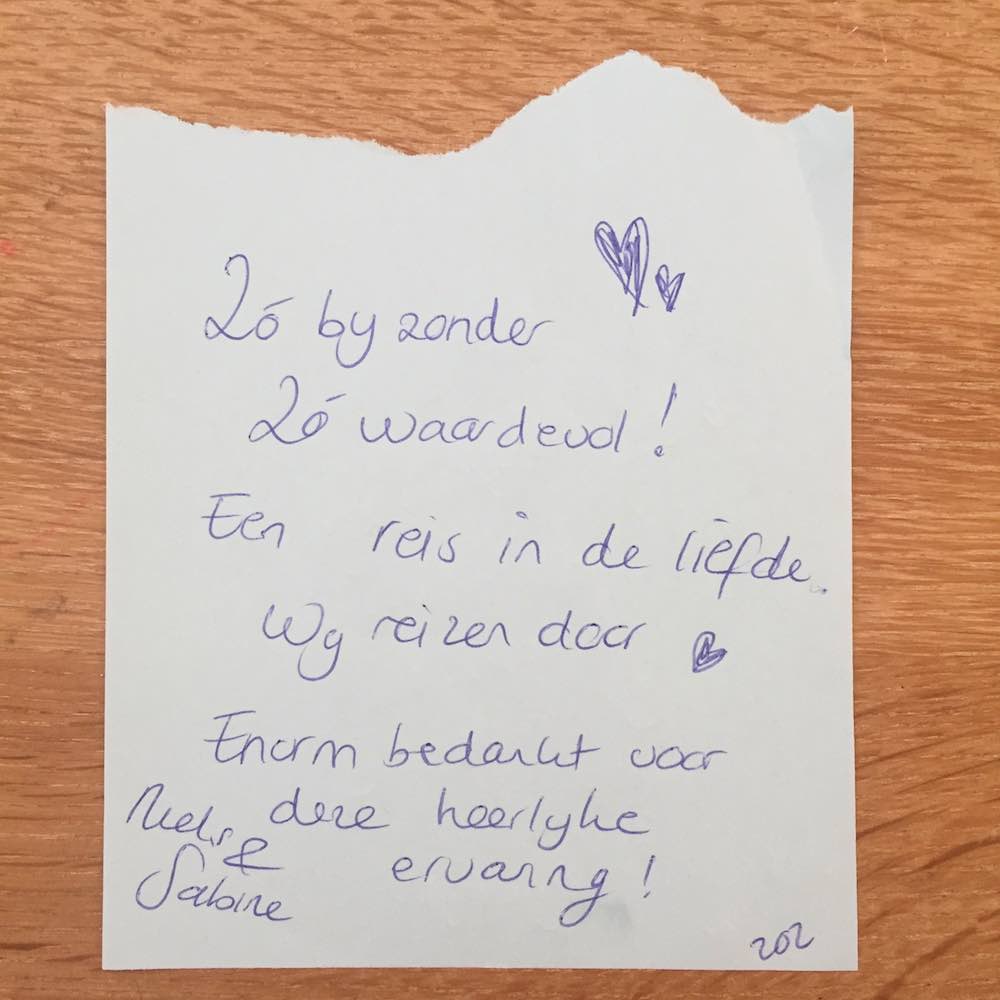 Zó byzonder
Zó waardevol!
Een reis in de liefde.
Wy reizen door
Enorm bedankt voor
deze heerlyke
ervaring!
Niels &
Sabine
202